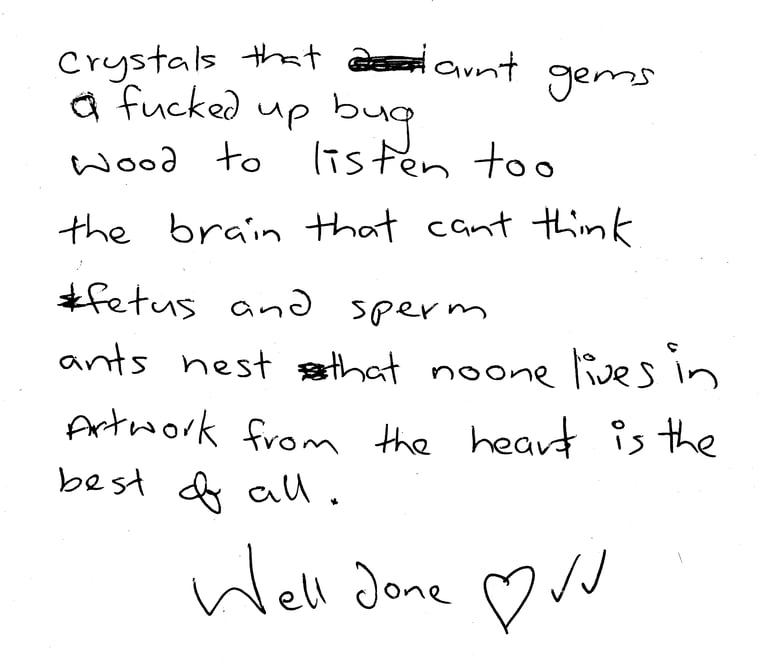 crystals that arnt gems
a fucked up bug
wood to listen too
the brain that cant think
fetus and sperm
ants nest that noone lives in
Artwork from the heart is the
best of all.
Well done ♡ ✓✓